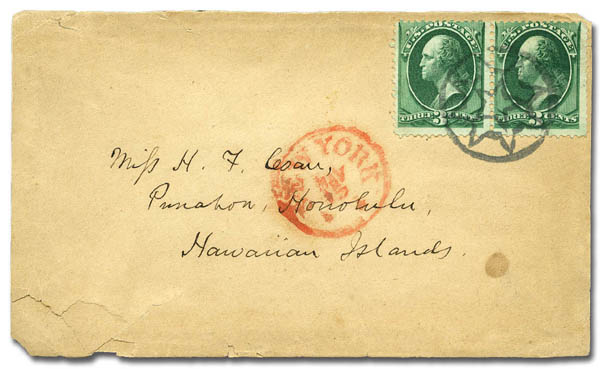 U.S. POSTAGE U.S. POSTAGE
THREE 3 CENTS THREE 3 CENTS
NEW YORK
Miss H. F. Coan,
Punahou, Honolulu,
Hawaiian Islands.